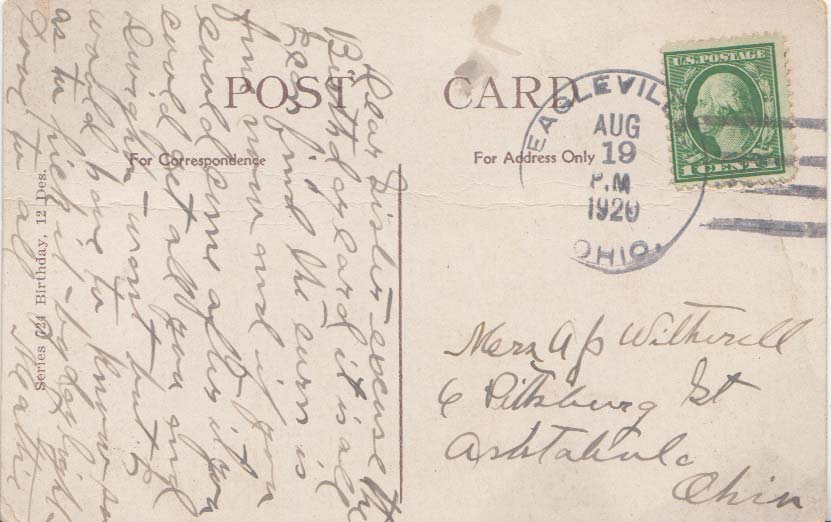 POST CARD
For Correspondence
For Address Only
Series 724 Birthday, 12 Des.
U.S. POSTAGE
1 CENT 1
EAGLEVILLE
AUG
19
P.M
1920
OHIO.
Dear Sister - excuse the
Birthday card it is all
I can find the corn is
fine now and if you
could come after it you
could get all you and
Dwight want but I
would have to know so
as to pick it by daylight
Love to all
Mrs A J Witherell
6 Pittsburg St
Ashtabula
Ohio